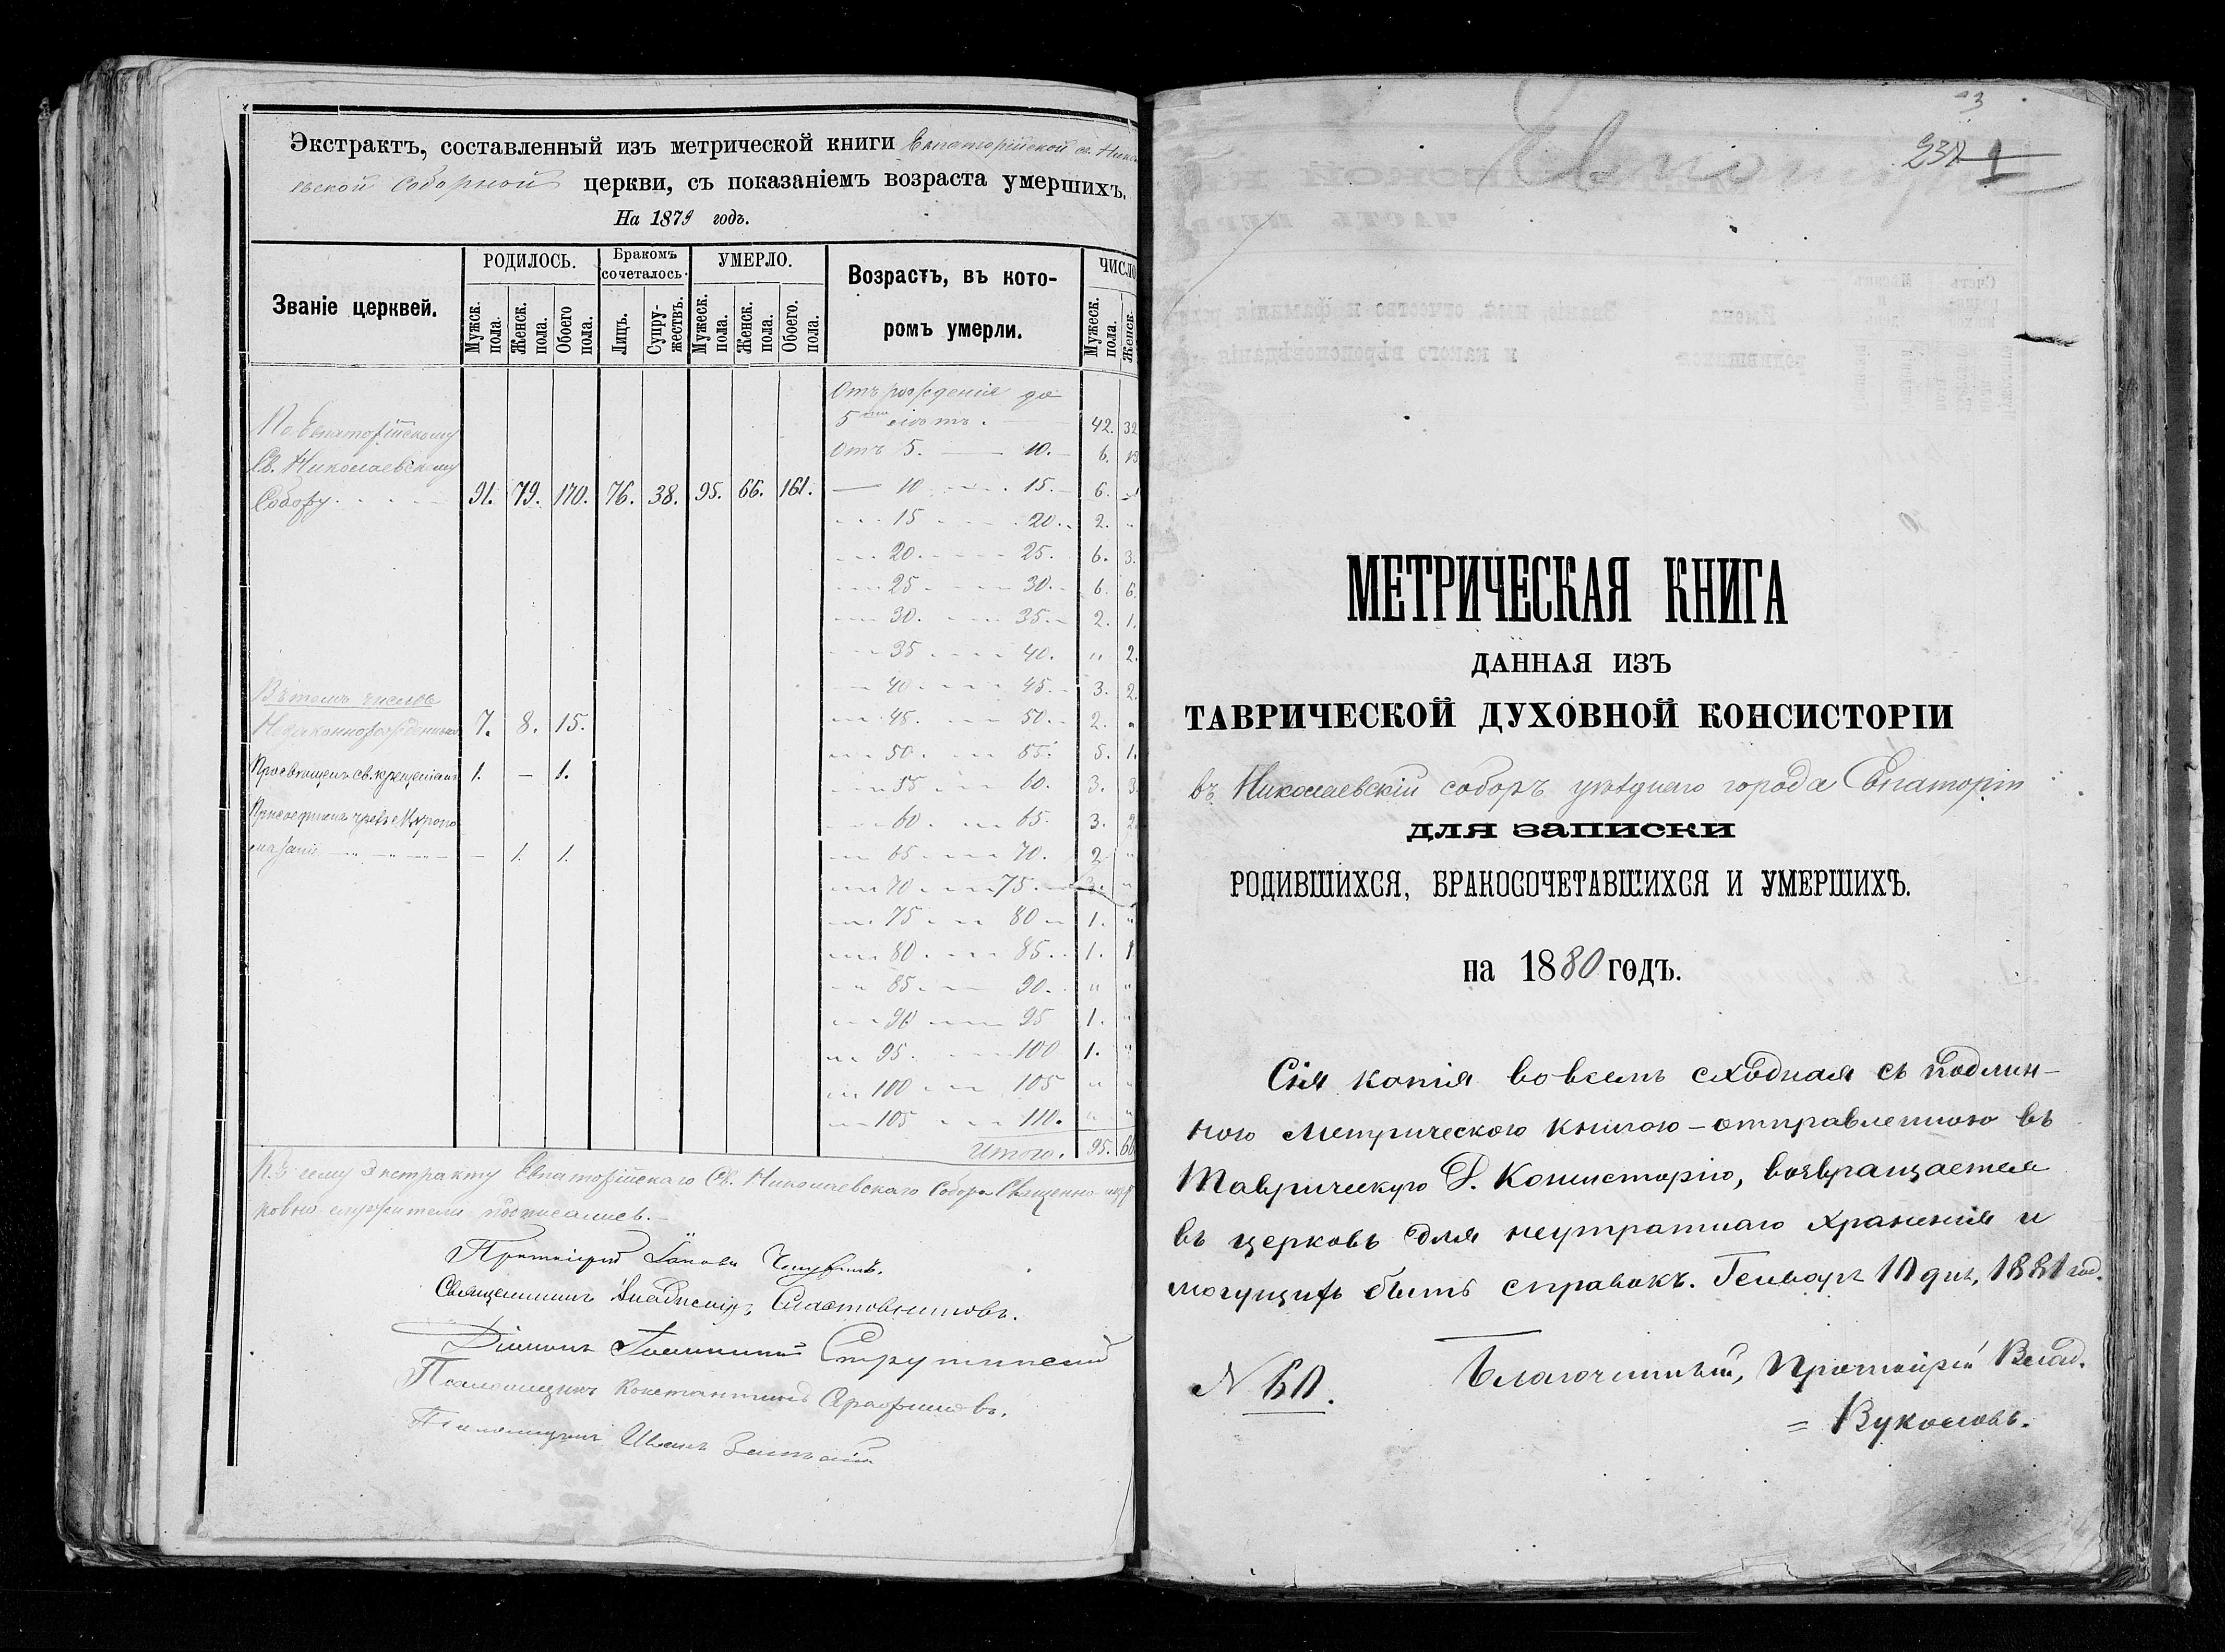 Экстрактъ, составленный изъ метрической книги Евпаторійской св. Никола
евской Соборной церкви, съ показаніемъ возраста умершихъ.
На 1879 годъ.
Званіе церквей.
РОДИЛОСЬ.
Мужск. пола.
Женск. пола.
Обоего пола.
Бракомъ сочеталось.
Лицъ.
Супружествъ.
УМЕРЛО.
Мужеск. пола.
Женск. пола.
Обоего пола.
Возрастъ, въ кото-
ромъ умерли.
ЧИСЛО
Мужеск. пола.
Женск.
По Евпаторійскому
Св. Николаевскому
Собору. 91. 79. 170. 76. 38. 95. 66. 161.
Въ томъ числѣ
Незаконнорожденныхъ 7. 8. 15.
Просвѣщенъ св. крещеніемъ 1. — 1.
Присоединена чрезъ Мѵропо
мазаніе — 1. 1.
Отъ рожденія до
5ти лѣтъ. 42. 32
Отъ 5. — 10. 6. 13
— 10 15. 6.
15 20. 2. "
20. 25. 6. 3.
25 30. 6. 6.
30. 35. 2. 1.
35 40. " 2.
40 45. 3. 2.
45. 50. 2. "
50. 55. 5. 1.
55 60. 3. 3.
60. 65. 3. 2
65. 70. 2 "
70. 75. 3. "
75 80 1. "
80. 85. 1. 1
85. 90. " "
90 95 1. "
95. 100 1. "
100 105 " "
105 110. " "
Итого. 95. 66
Къ сему Экстракту Евпаторійскаго Св. Николаевскаго Собора Священно-цер
ковно-служители подписались.—
Протоіерей Іаковъ
Священникъ Владиміръ Сластовниковъ.
Діаконъ Струтинскій
Псаломщикъ Константинъ Серафимовъ.
Псаломщикъ Иванъ
3
232 1
Евпаторія
МЕТРИЧЕСКАЯ КНИГА
ДАННАЯ ИЗЪ
ТАВРИЧЕСКОЙ ДУХОВНОЙ КОНСИСТОРІИ
въ Николаевскій соборъ уѣзднаго города Евпаторіи
для записки
РОДИВШИХСЯ, БРАКОСОЧЕТАВШИХСЯ И УМЕРШИХЪ.
на 1880 годъ.
Сія копія во всемъ сходная съ подлин-
ною Метрическою книгою — отправленною въ
Таврическую Д. Консисторію, возвращается
въ церковь для неутратнаго храненія и
могущихъ быть справокъ. Генваря 10 дня, 1881 год.
N 60.
Благочинный, Протоіерей Влад.
= Вуколовъ.